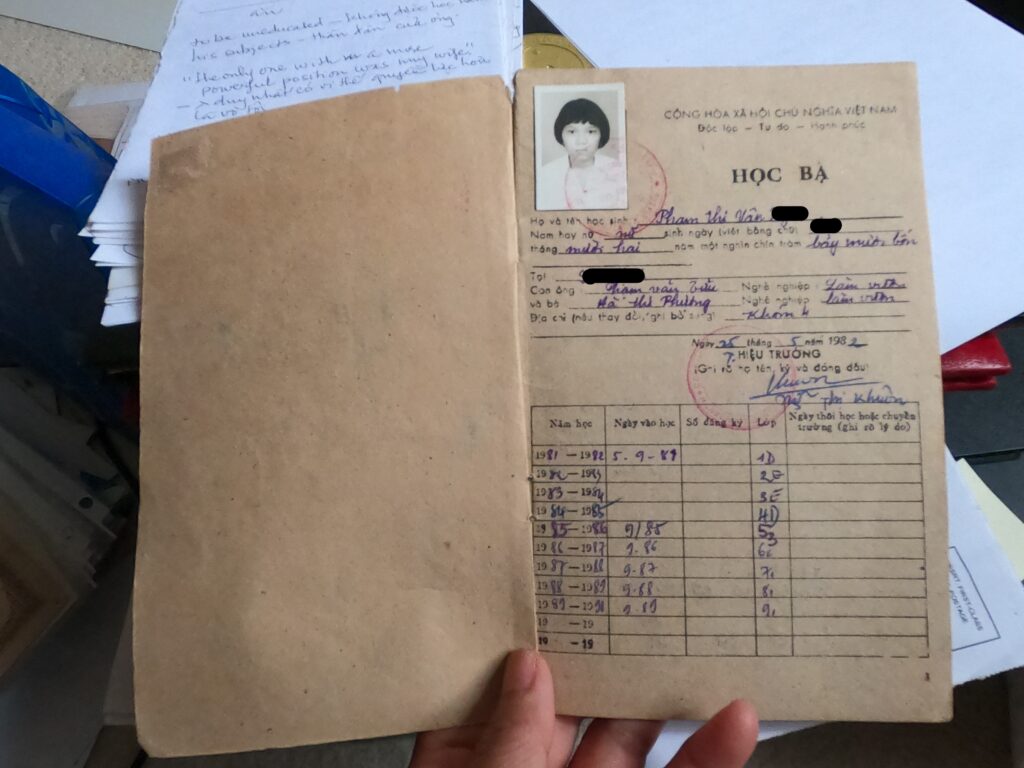 to be uneducated – không được học
his subjects – thần dân của ông.
"the only one with a more
powerful position was my wife"
CỘNG HÒA XÃ HỘI CHỦ NGHĨA VIỆT NAM
Độc lập — Tự do — Hạnh phúc
HỌC BẠ
Họ và tên học sinh : Phạm thị Vân
Nam hay nữ nữ sinh ngày (viết bằng chữ)
tháng mười hai năm một nghìn chín trăm bảy mươi bốn
Tại
Con ông Phạm văn Nghề nghiệp Làm vườn
và bà Hà thị Phương Nghề nghiệp làm vườn
Địa chỉ (nếu thay đổi, ghi bổ sung) Khóm 4
Ngày 25 tháng 5 năm 1982
T. HIỆU TRƯỞNG
(Ghi rõ họ tên, ký và đóng dấu)
thị Khuôn
Năm học Ngày vào học Số đăng ký Lớp Ngày thôi học hoặc chuyển trường (ghi rõ lý do)
1981 — 1982 5. 9 - 81 1D
1982 — 1983 2E
1983 — 1984 3E
1984 — 1985 4D
1985 — 1986 9/85 5
1986 — 1987 9.86 6
1987 — 1988 9.87 7
1988 — 1989 9.88 8
1989 — 1990 9.89 9
19 — 19
19 — 19
FIRST-CLASS
POSTAGE